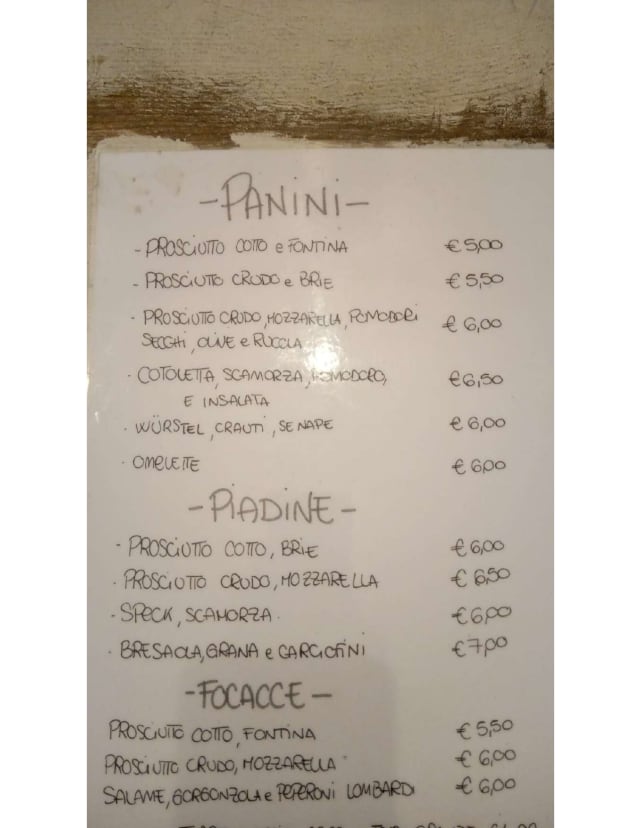 -PANINI-
- PROSCIUTTO COTTO e FONTINA € 5,00
- PROSCIUTTO CRUDO e BRIE € 5,50
- PROSCIUTTO CRUDO, MOZZARELLA, POMODORI € 6,00
SECCHI, OLIVE e RUCOLA
- COTOLETTA, SCAMORZA, POMODORO, € 6,50
E INSALATA
- WÜRSTEL, CRAUTI, SENAPE € 6,00
- OMELETTE € 6,00
-PIADINE-
- PROSCIUTTO COTTO, BRIE € 6,00
- PROSCIUTTO CRUDO, MOZZARELLA € 6,50
- SPECK, SCAMORZA € 6,00
- BRESAOLA, GRANA e CARCIOFINI € 7,00
-FOCACCE-
PROSCIUTTO COTTO, FONTINA € 5,50
PROSCIUTTO CRUDO, MOZZARELLA € 6,00
SALAME, GORGONZOLA e PEPERONI LOMBARDI € 6,00